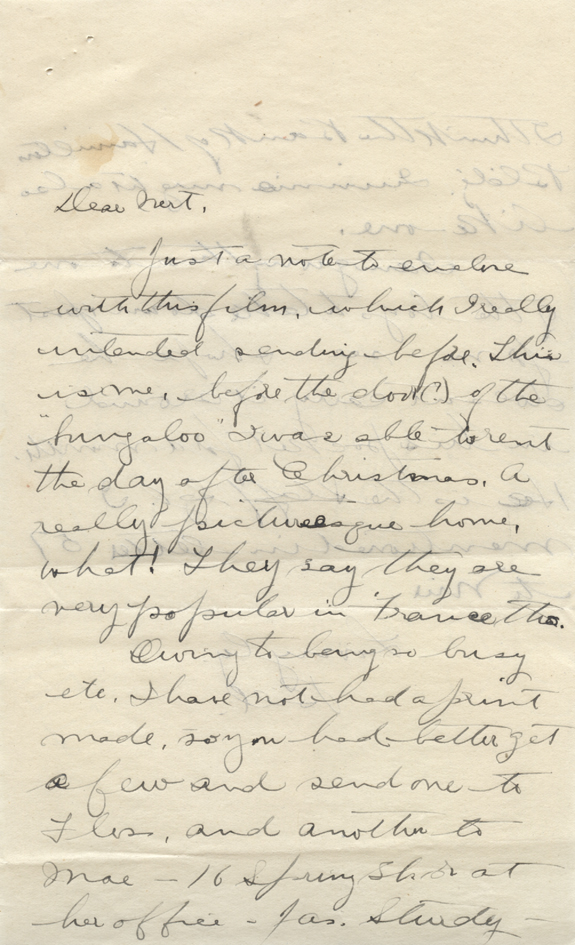 Dear Mert,
Just a note to enclose
with this film, which I really
intended sending before. This
is me, before the door(?) of the
"bungaloo" I was able to rent
the day after Christmas. A
really "picturesque home,
what! They say they are
very popular in France tho.
Owing to being so busy
etc. I have not had a print
made, so you had better get
a few and send one to
Floss, and another to
Mae - 16 Spring St. or at
her office - Jas. Sturdy -